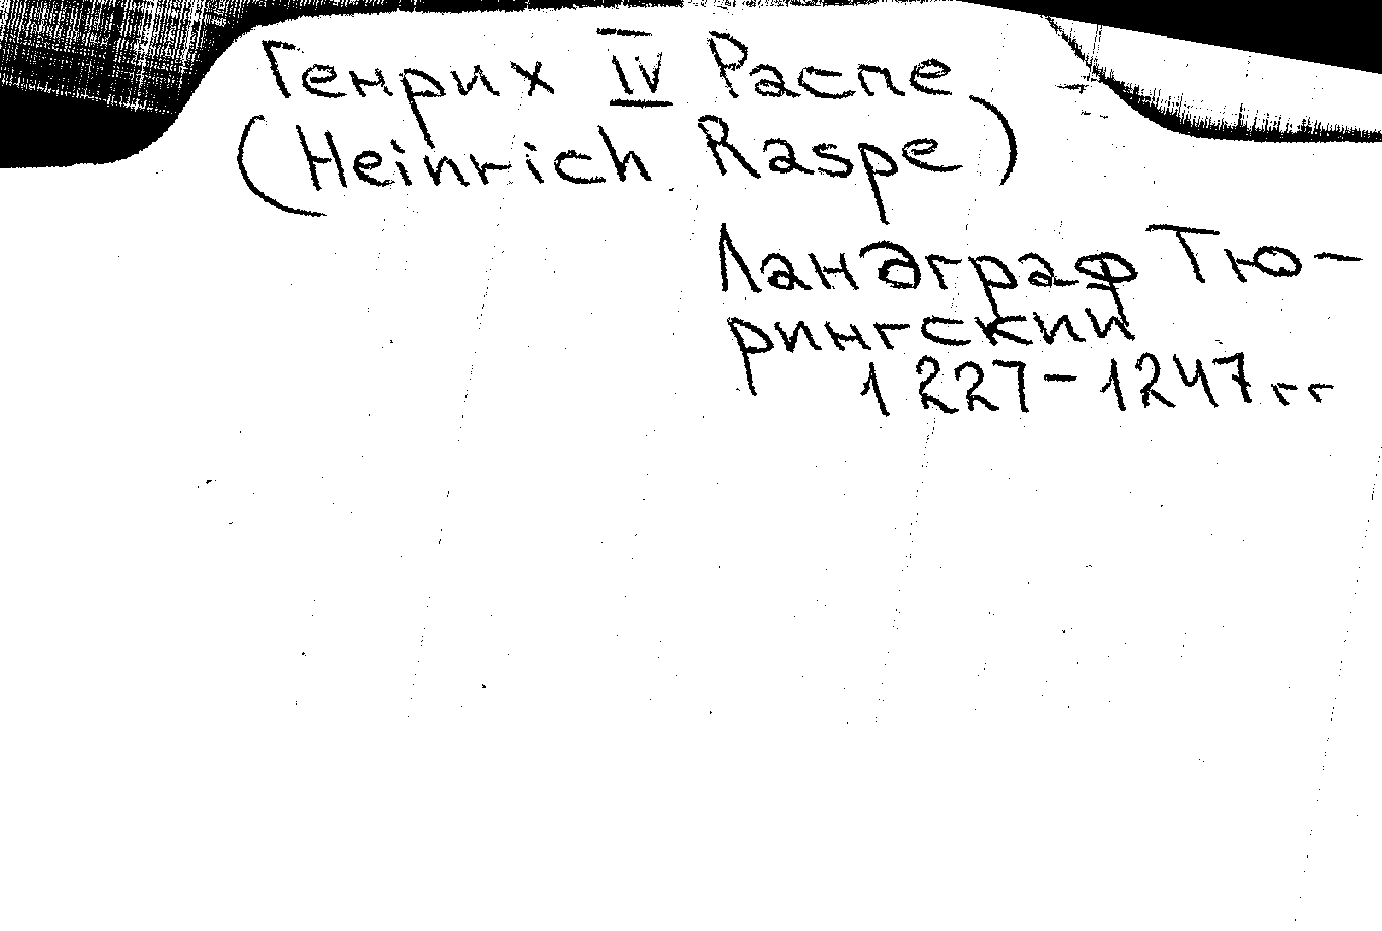 Генрих IV Распе
(Heinrich Raspe)
Ландграф Тю-
рингский
1227-1247 гг